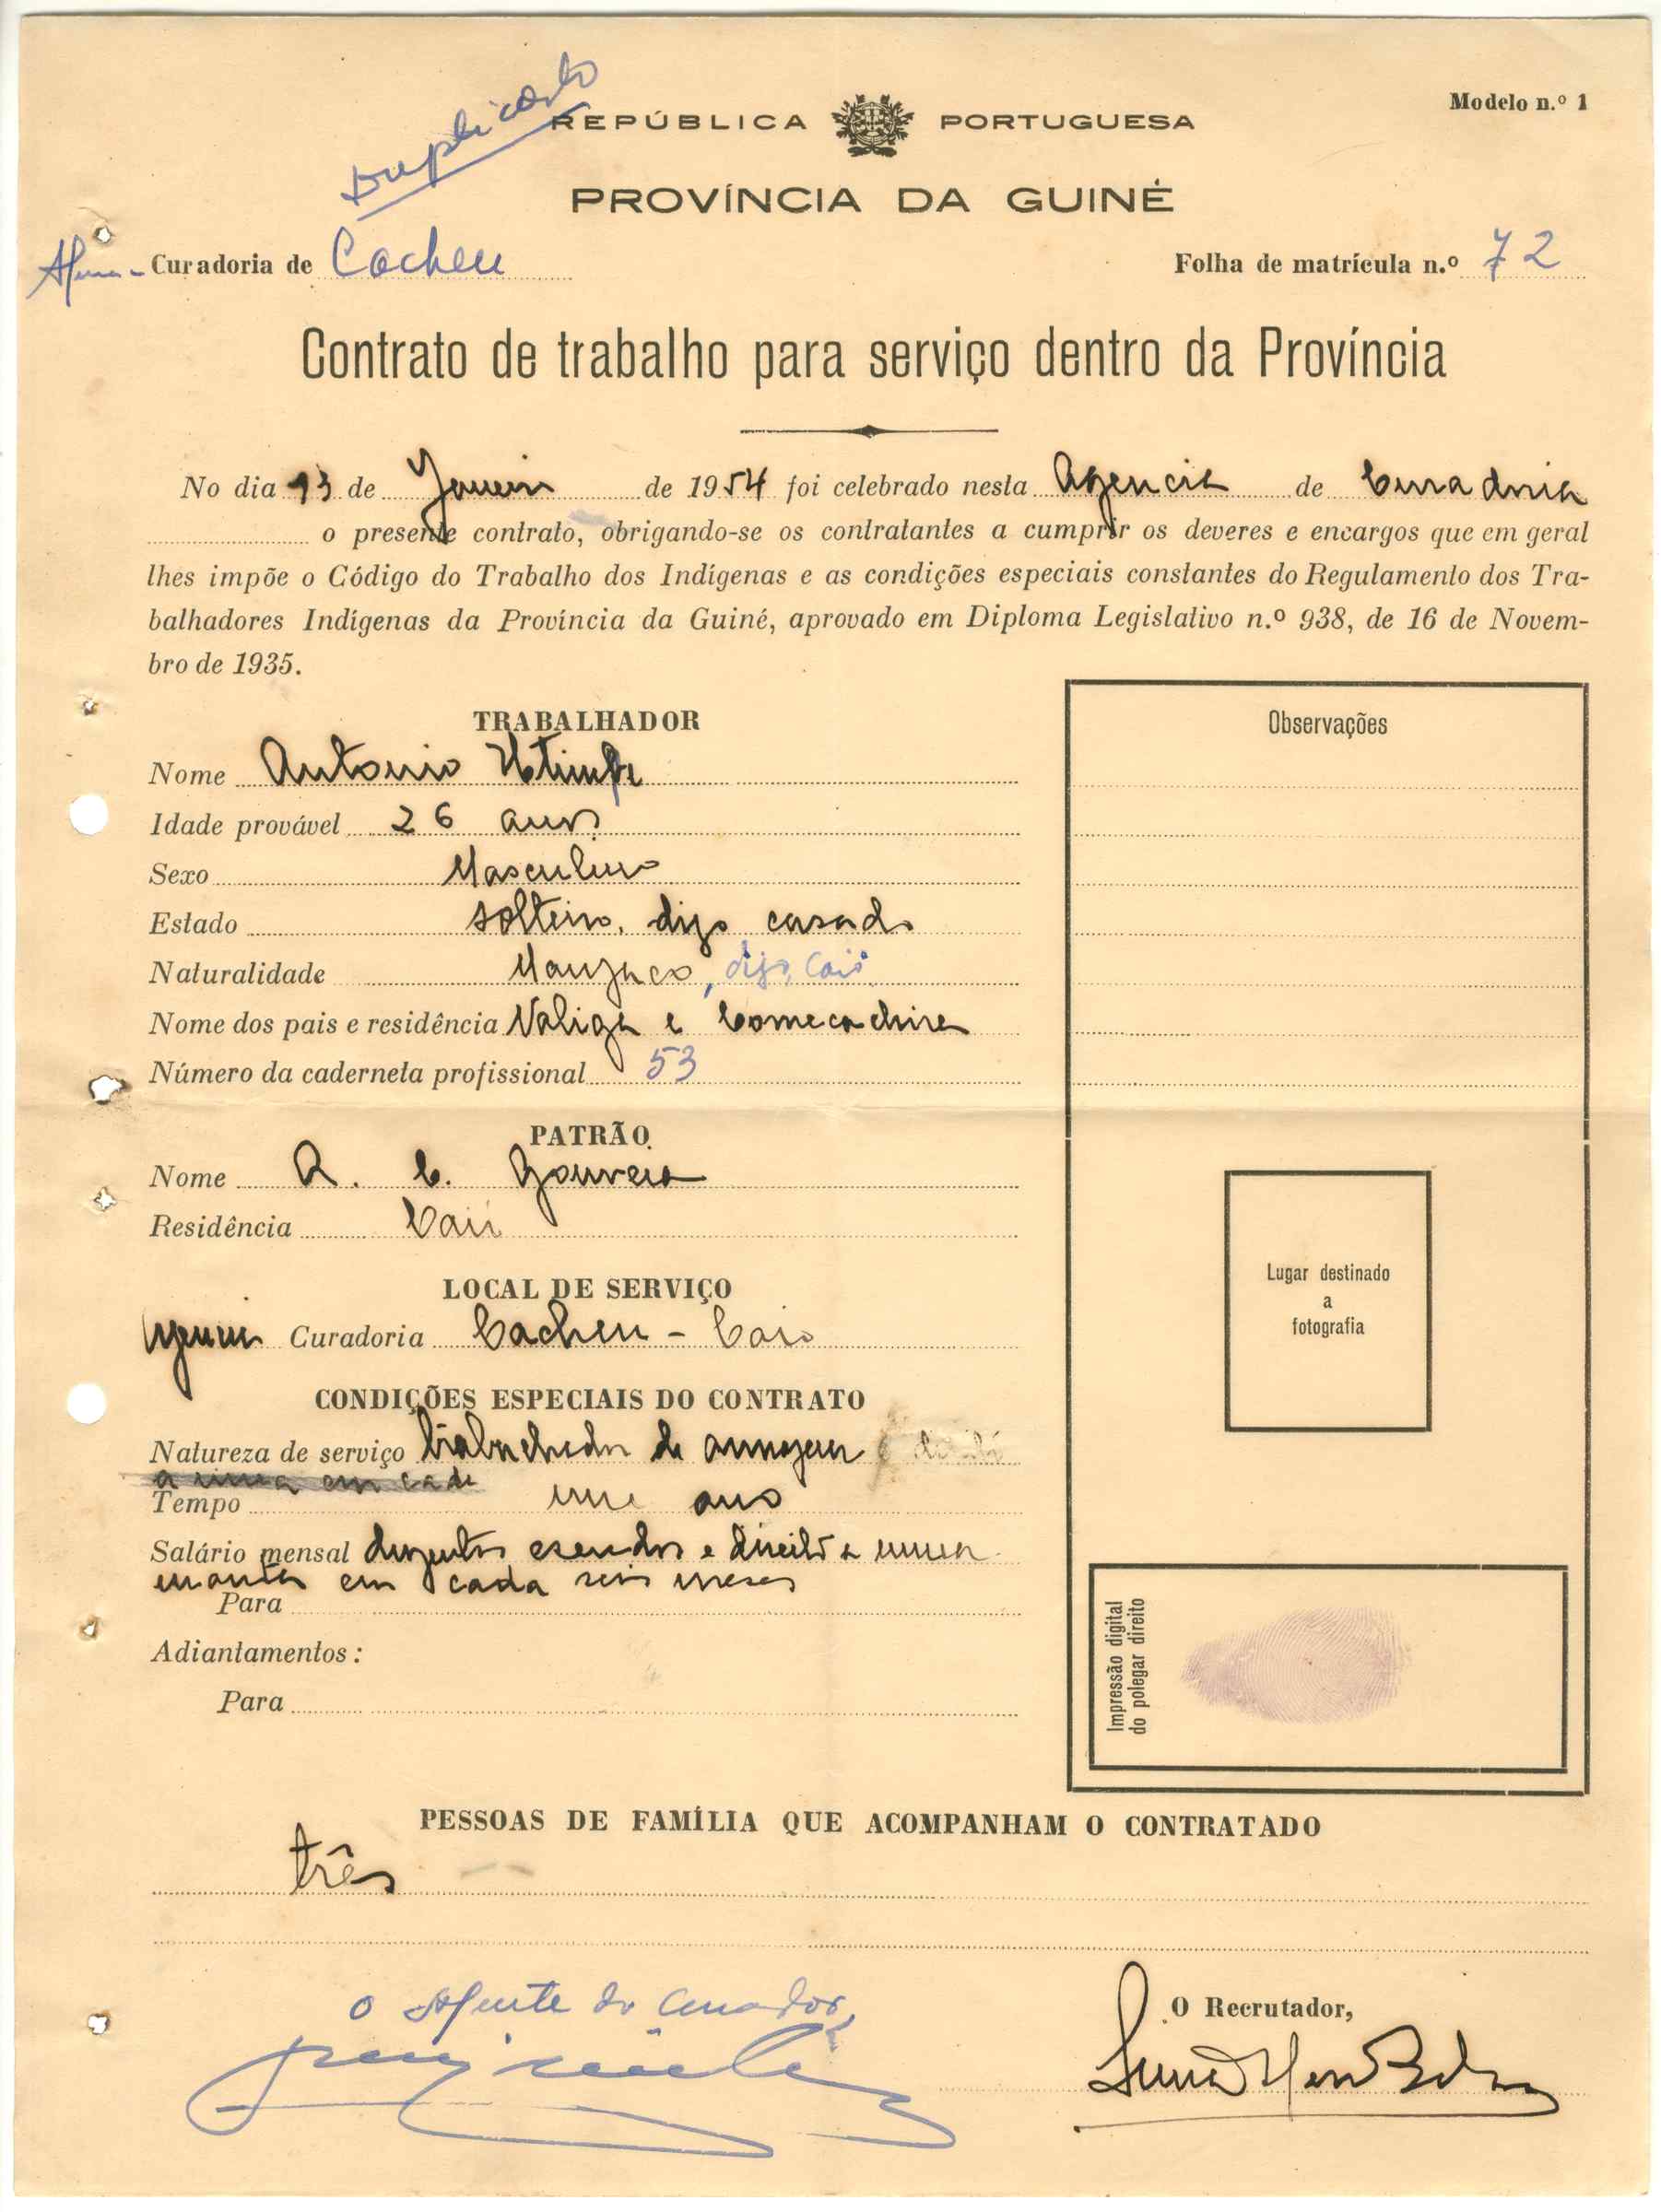 Duplicado
Modelo n.º 1
REPÚBLICA PORTUGUESA
PROVÍNCIA DA GUINÉ
Curadoria de Cacheu
Folha de matrícula n.º 72
Contrato de trabalho para serviço dentro da Província
No dia 13 de Janeiro de 1954 foi celebrado nesta Agencia de Curadoria
o presente contrato, obrigando-se os contratantes a cumprir os deveres e encargos que em geral
lhes impõe o Código do Trabalho dos Indígenas e as condições especiais constantes do Regulamento dos Tra-
balhadores Indígenas da Província da Guiné, aprovado em Diploma Legislativo n.º 938, de 16 de Novem-
bro de 1935.
TRABALHADOR
Nome Antonio
Idade provável 26 anos
Sexo Masculino
Estado solteiro, digo casado
Naturalidade Manjaco, digo, Caió
Nome dos pais e residência Valiga e
Número da caderneta profissional 53
PATRÃO
Nome A. C. Gouveia
Residência Caió
LOCAL DE SERVIÇO
Curadoria Cacheu - Caió
CONDIÇÕES ESPECIAIS DO CONTRATO
Natureza de serviço trabalhador de armazem
Tempo um ano
Salário mensal duzentos escudos e direito a uma
manta em cada seis meses
Para
Adiantamentos :
Para
Observações
Lugar destinado
a
fotografia
Impressão digital
do polegar direito
PESSOAS DE FAMÍLIA QUE ACOMPANHAM O CONTRATADO
três
O Agente do Curador,
O Recrutador,